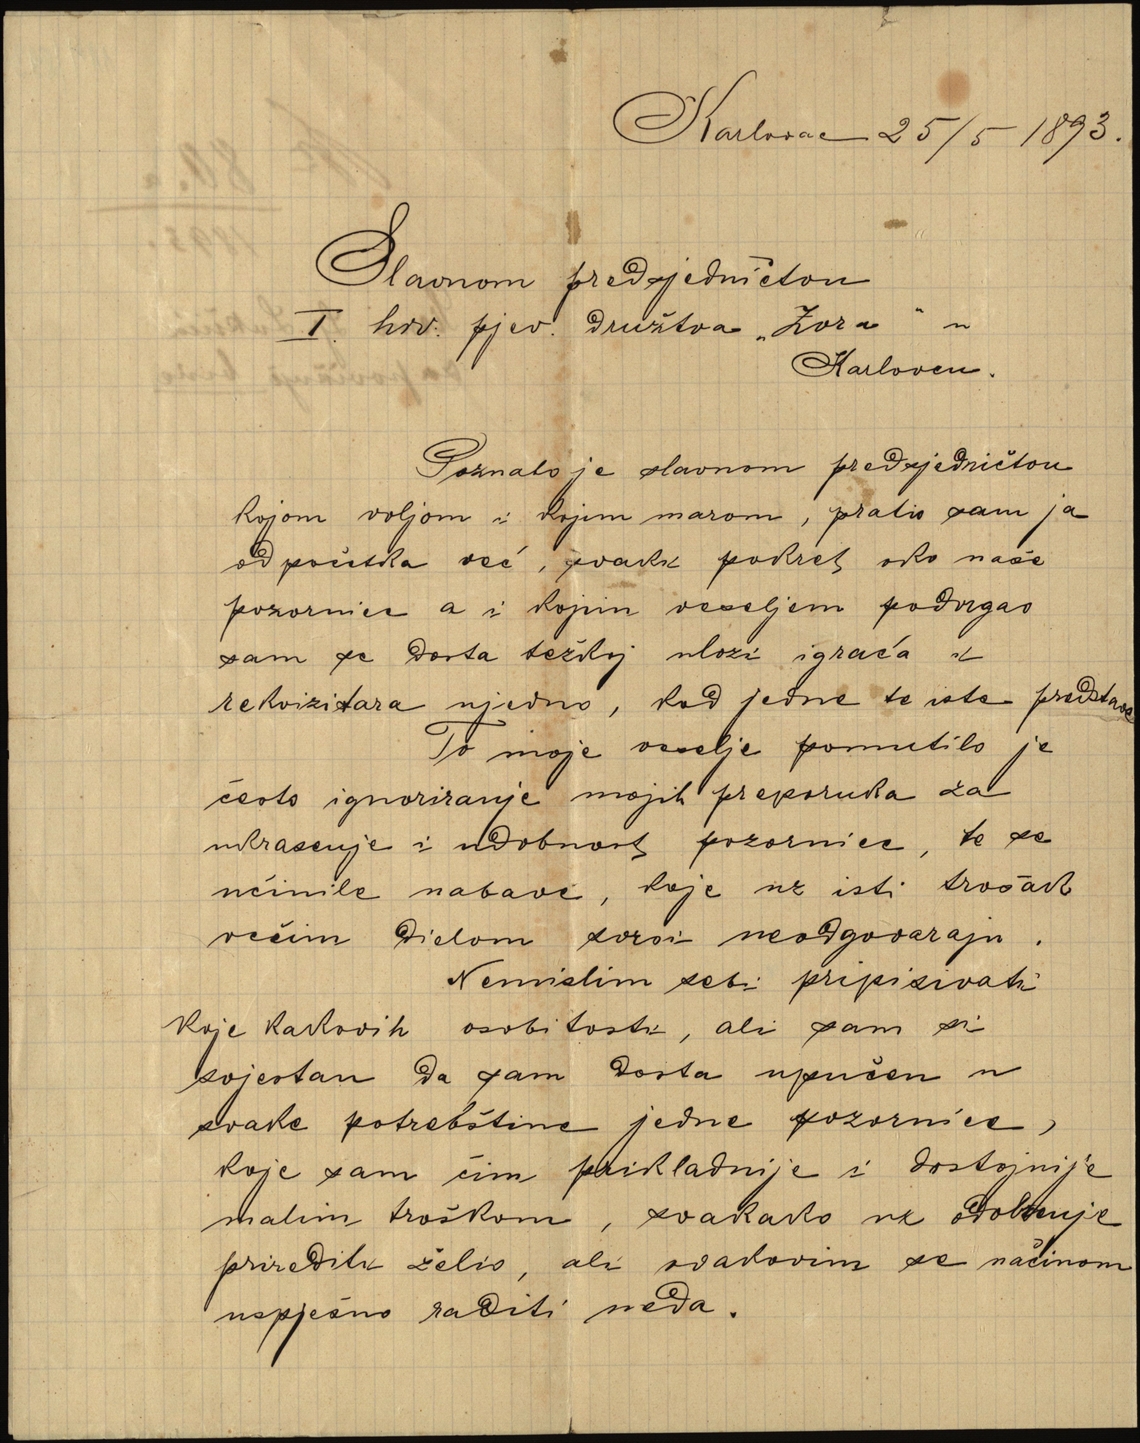 Karlovac 25/5 1893.
Slavnom predsjedničtvu
I. hrv. pjev. družtva „Zora" u
Karlovcu.
Poznato je slavnom predsjedničtvu
kojom voljom i kojim marom, pratio sam ja
od početka već, svaki pokret oko naše
pozornice a i kojim veseljem podvrgao
sam se dosta težkoj ulozi igrača i
rekvizitara ujedno, kod jedne te iste predstave
To moje veselje pomutilo je
često ignoriranje mojih preporuka za
ukrasenje i udobnost pozornice, te se
učinile nabave, koje uz isti trošak
većim dielom svrsi neodgovaraju.
Nemislim sebi pripisivati
koje kakovih osobitosti, ali sam si
svjestan da sam dosta upućen u
svake potrebštine jedne pozornice,
koje sam čim prikladnije i dostojnije
malim troškom, svakako uz odobrenje
prirediti želio, ali ovakovim se načinom
uspješno raditi neda.